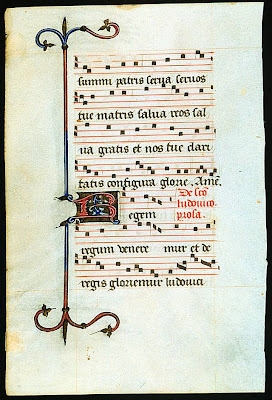 summi patris serua seruos
tue matris salua reos sal
ua gratis et nos tue clari
tatis configura glorie. Ame.
De sco
ludouico
Regem prosa.
regum venere mur et de
regis gloriemur ludouici